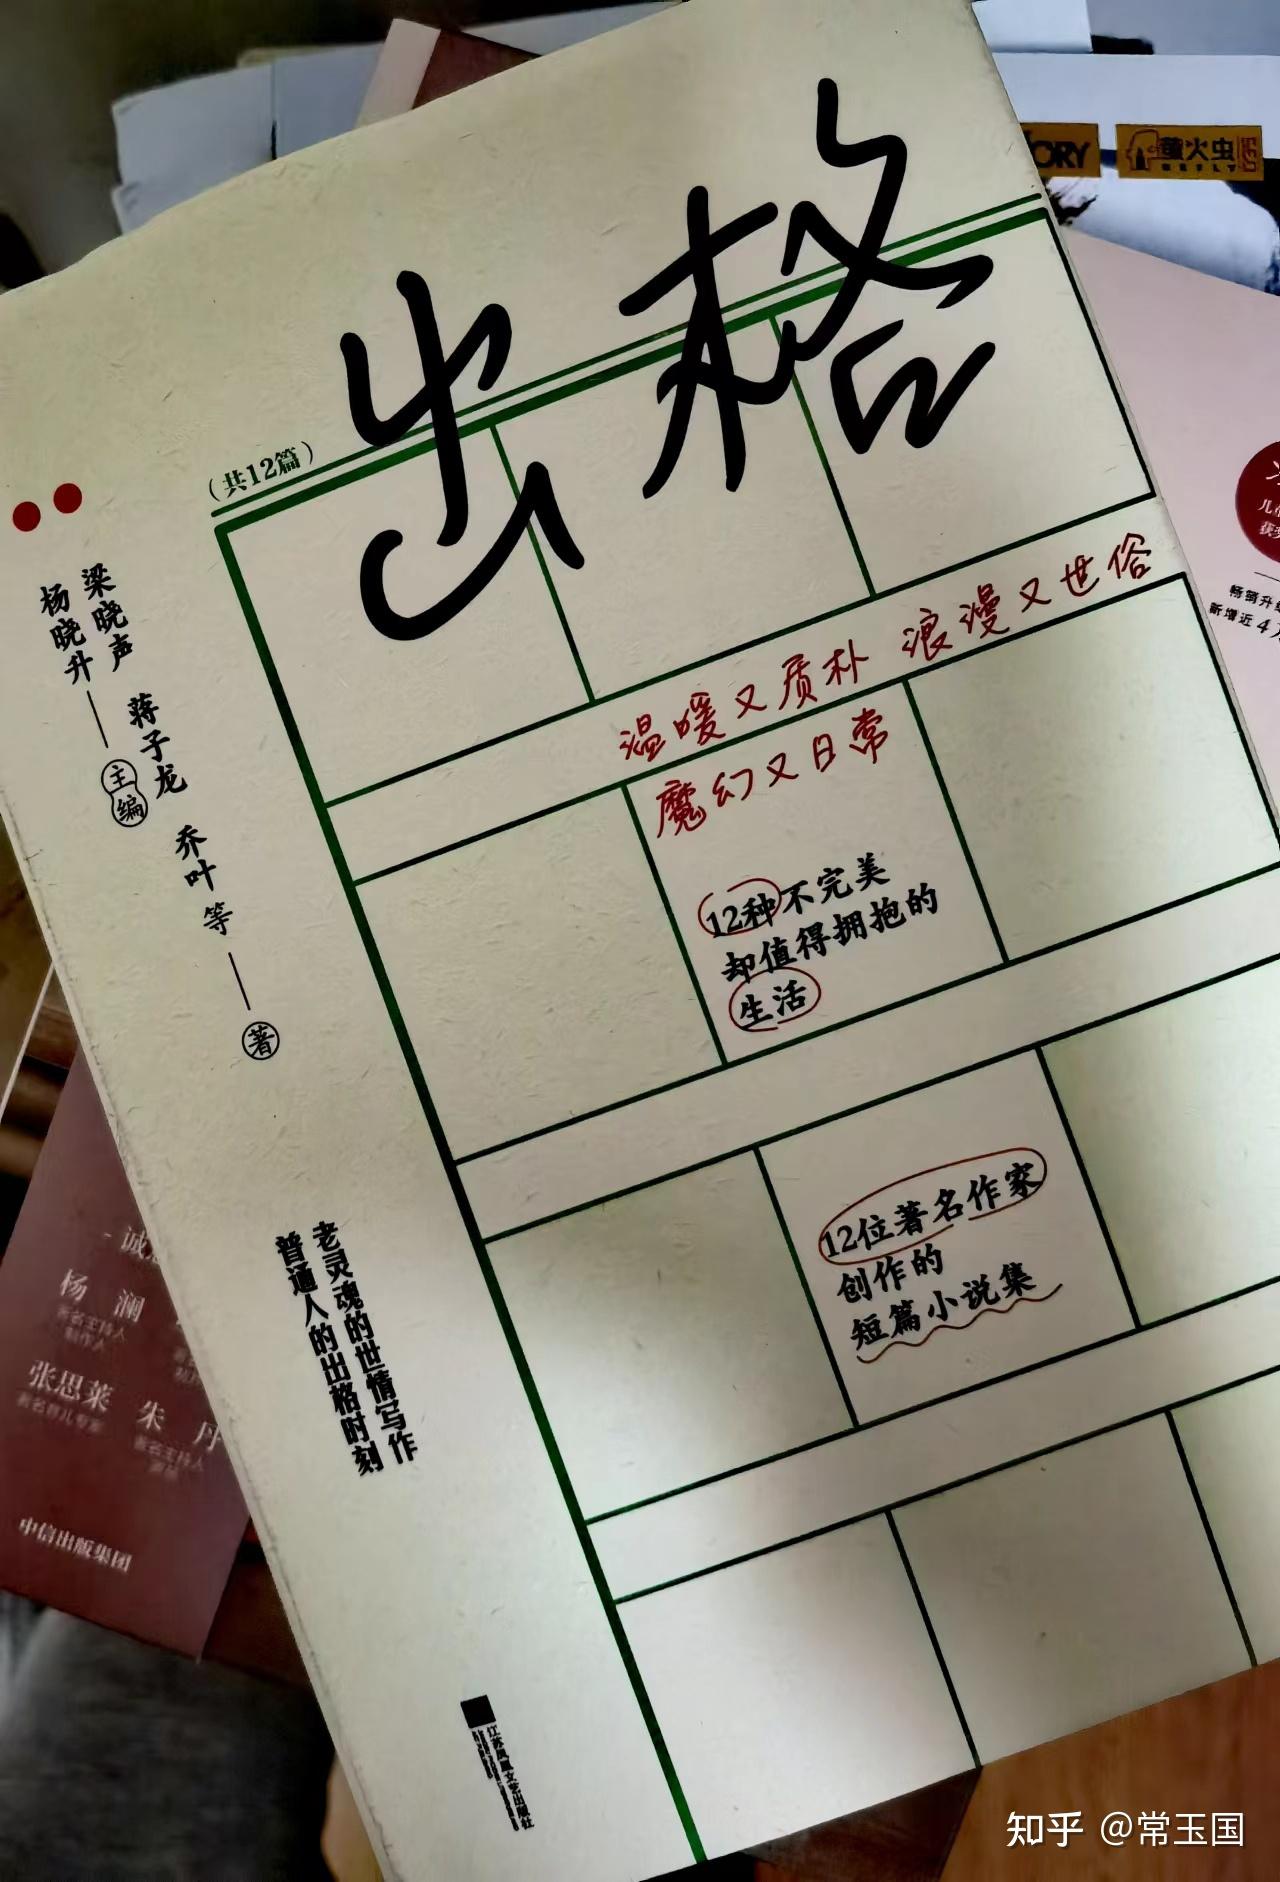 出格
（共12篇）
温暖又质朴 浪漫又世俗
魔幻又日常
12种不完美
却值得拥抱的
生活
12位著名作家
创作的
短篇小说集
梁晓声 蒋子龙 乔叶 等——著
杨晓升——主编
老灵魂的世情写作
普通人的出格时刻
江苏凤凰文艺出版社
ORY
萤火虫
儿
获
畅销升
新增近4
诚
杨澜
著名主持人
制作人
张思莱 朱丹
著名育儿专家 著名主持人
中信出版集团
知乎 @常玉国